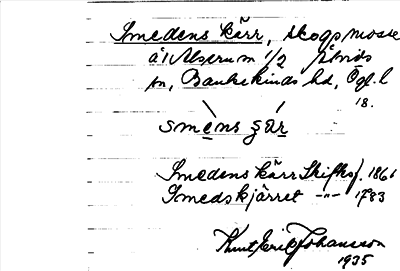 Smedens kärr, skogsmosse
å 1 Alserum 1/2 Åtvids
sn, Bankekinds hd, Ögl. l
18.
smens çär
Smedens kärr Skifteskf. 1861
Smedskjärret -"- 1783
Knut Eric Johansson
1935